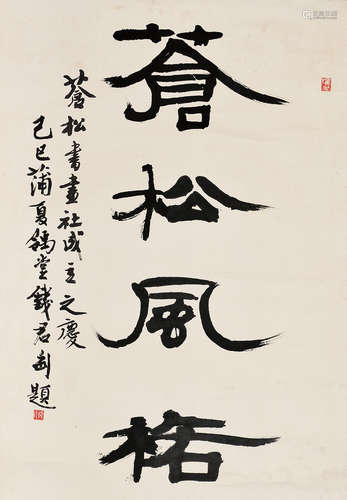 蒼松風格
蒼松書畫社成立之慶
己巳蒲夏鶴堂錢君匋題